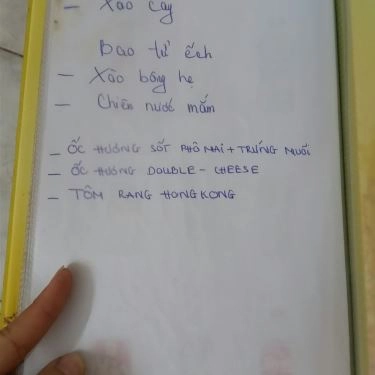 - Xào cay
Bao tử ếch
- Xào bông hẹ
- Chiên nước mắm
- ỐC HƯƠNG SỐT PHÔ MAI + TRỨNG MUỐI
- ỐC HƯƠNG DOUBLE - CHEESE
- TÔM RANG HONGKONG